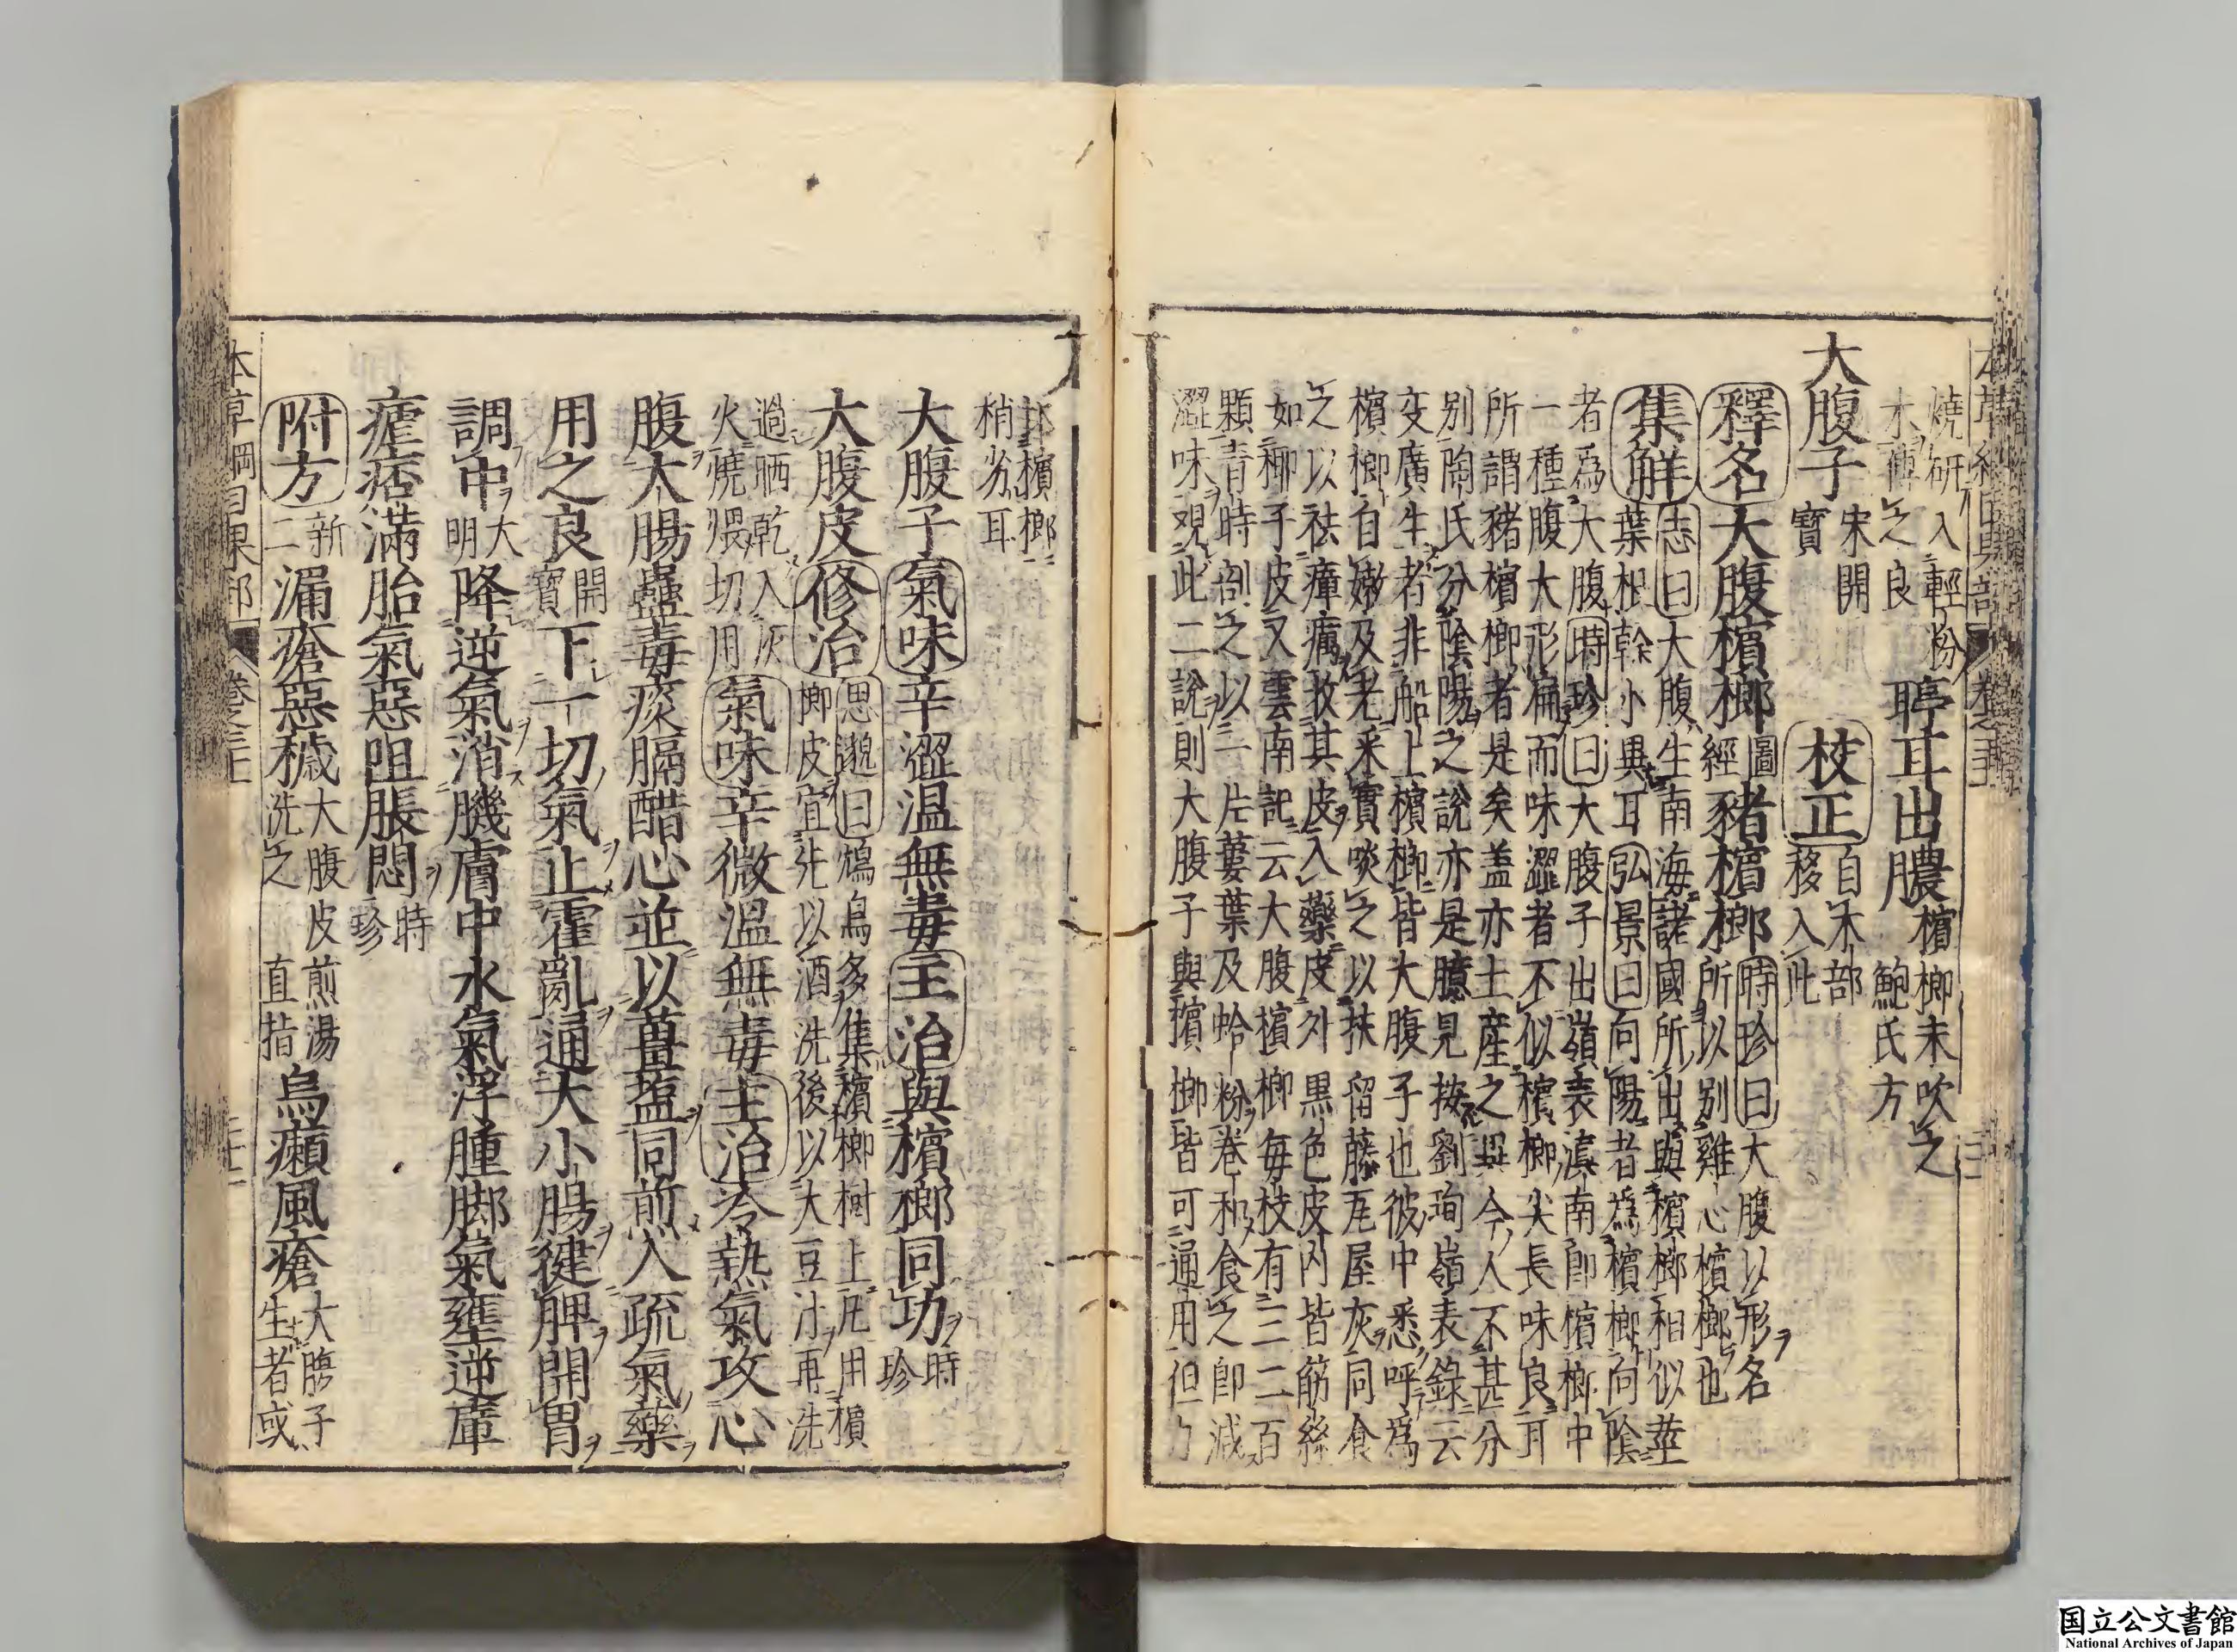 燒研入輕粉
末傅之良
聤耳出膿
檳榔末吹之
鮑氏方
大腹子
宋開
寶
校正
自木部
移入此
釋名大腹檳榔
圖
經
豬檳榔
時珍曰大腹以形名
所以別雞心檳榔也
集觧
志曰大腹生南海諸國所出與檳榔相似莖
葉根幹小異耳弘景曰向陽者爲檳榔向陰
者爲大腹時珍曰大腹子出嶺表滇南卽檳榔中
一種腹大形扁而味澀者不似檳榔尖長味良耳
所謂豬檳榔者是矣盖亦土産之異今人不甚分
別陶氏分陰陽之說亦是臆見按劉珣嶺表錄云
交廣生者非船上檳榔皆大腹子也彼中悉呼爲
檳榔自嫩及老釆實啖之以扶留藤瓦屋灰同食
之以祛瘴癘收其皮入藥皮外黑色皮內皆筋絲
如椰子皮又雲南記云大腹檳榔每枝有三二百
顆青時剖之以一片蔞葉及蛤粉卷和食之卽減
澀味觀此二說則大腹子與檳榔皆可通用但力
檳榔
稍劣耳
大腹子氣味辛澀温無毒主治與檳榔同功
時
珍
大腹皮修治
思邈曰鴆鳥多集檳榔樹上凡用檳
榔皮宜先以酒洗後以大豆汁再洗
過晒乾入灰
火燒煨切用
氣味辛微温無毒主治冷熱氣攻心
腹大腸蠱毒痰膈醋心並以薑盬同煎入疏氣藥
用之良
開
寶
下一切氣止霍亂通大小腸健脾開胃
調中
大
明
降逆氣消肌膚中水氣浮腫脚氣壅逆瘴
瘧痞滿胎氣惡阻脹悶
時
珍
附方
新
二
漏瘡惡穢
大腹皮煎湯
洗之 直指
烏癩風瘡
大腹子
生者或
本草綱目果部 卷之三十一
国立公文書館
National Archives of Japan